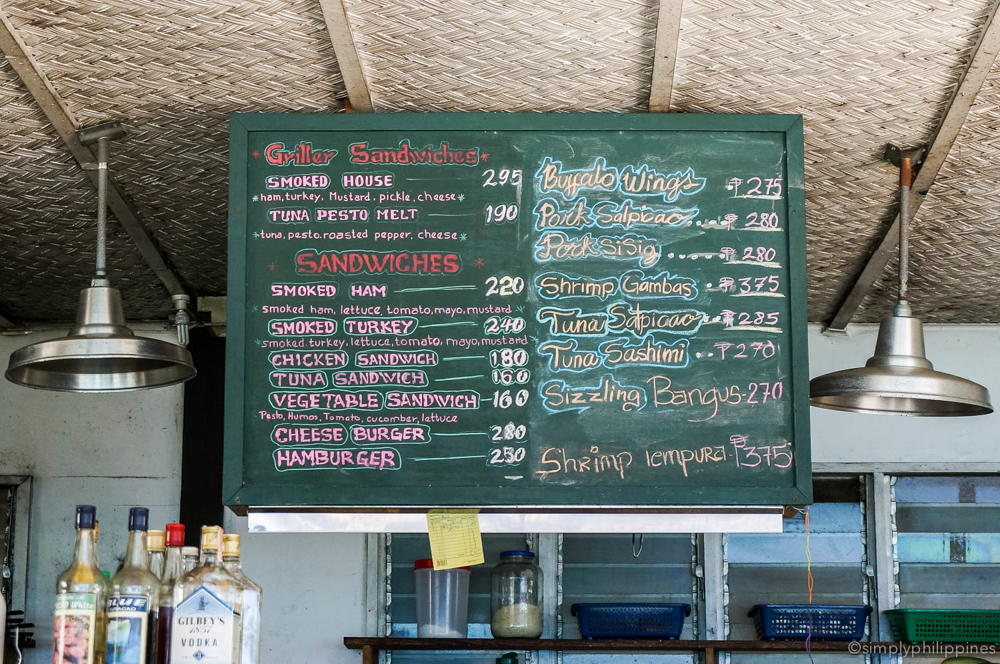 * Griller Sandwiches *
SMOKED HOUSE 295
* ham, turkey, Mustard, pickle, cheese *
TUNA PESTO MELT 190
* tuna, pesto, roasted pepper, cheese *
* SANDWICHES *
SMOKED HAM 220
* smoked ham, lettuce, tomato, mayo, mustard *
SMOKED TURKEY 240
* smoked turkey, lettuce, tomato, mayo, mustard
CHICKEN SANDWICH 180
TUNA SANDWICH 160
VEGETABLE SANDWICH 160
Pesto, Humos, Tomato, cucomber, lettuce
CHEESE BURGER 280
HAMBURGER 250
Buffalo Wings ₱275
Pork Salpicao ₱280
Pork Sisig ₱280
Shrimp Gambas ₱375
Tuna Salpicao ₱285
Tuna Sashimi ₱270
Sizzling Bangus 270
Shrimp Tempura ₱375
BLUE
GILBEY'S
1857
VODKA
©simplyphilippines